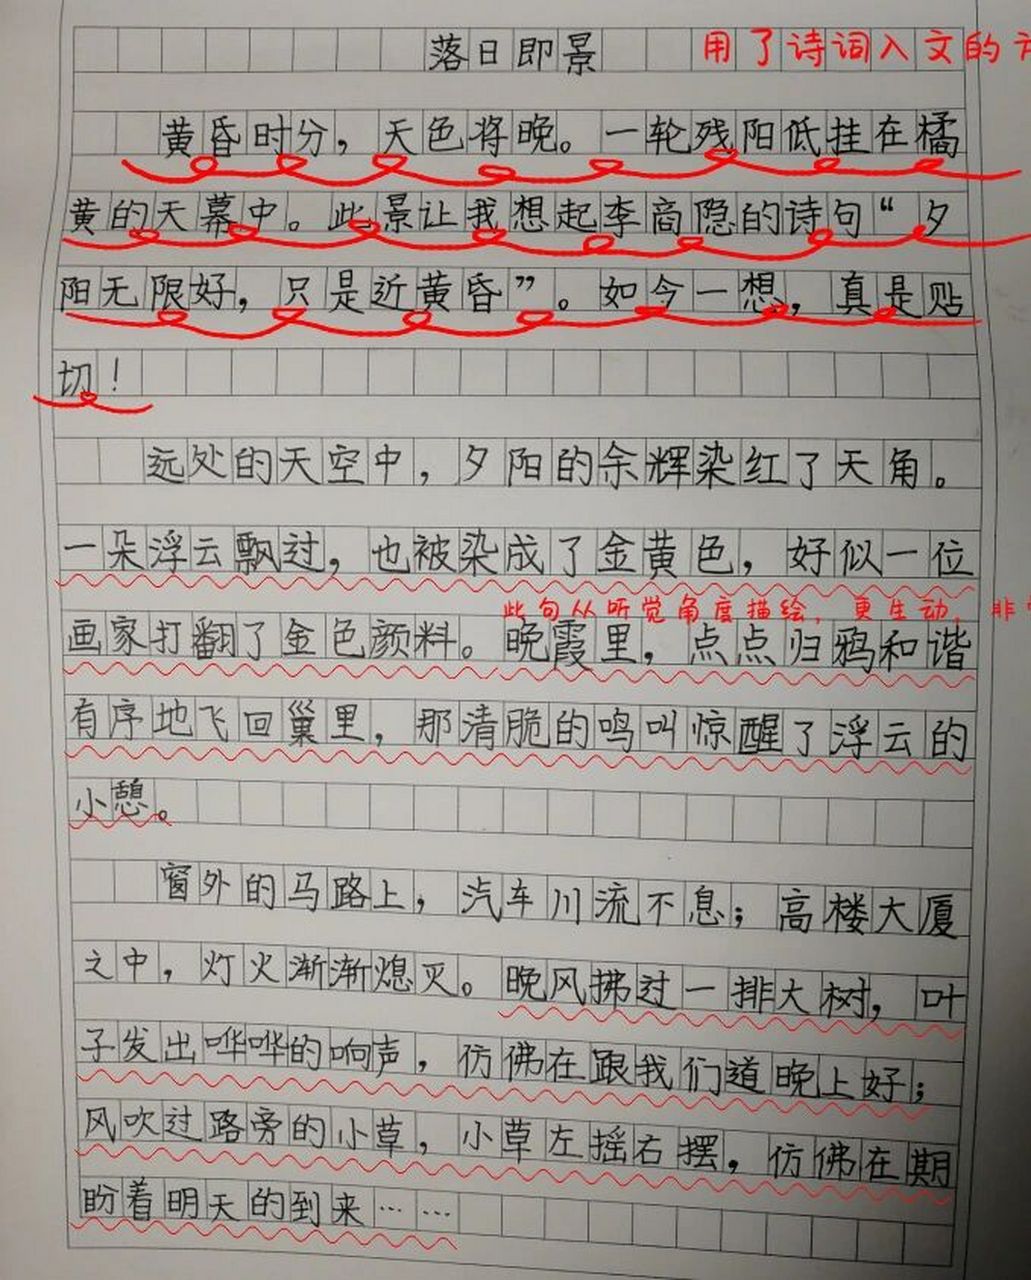 落日即景
用了诗词入文的
黄昏时分，天色将晚。一轮残阳低挂在橘
黄的天幕中。此景让我想起李商隐的诗句“夕
阳无限好，只是近黄昏”。如今一想，真是贴
切！
远处的天空中，夕阳的余辉染红了天角。
一朵浮云飘过，也被染成了金黄色，好似一位
此句从听觉角度描绘，更生动，非
画家打翻了金色颜料。晚霞里，点点归鸦和谐
有序地飞回巢里，那清脆的鸣叫惊醒了浮云的
小憩。
窗外的马路上，汽车川流不息；高楼大厦
之中，灯火渐渐熄灭。晚风拂过一排大树，叶
子发出哗哗的响声，仿佛在跟我们道晚上好；
风吹过路旁的小草，小草左摇右摆，仿佛在期
盼着明天的到来……